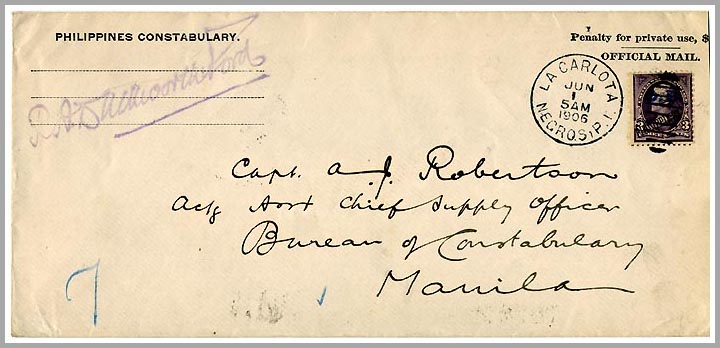 PHILIPPINES CONSTABULARY.
Penalty for private use, $
OFFICIAL MAIL.
LA CARLOTA
JUN
1
5 AM
1906
NEGROS, P.I.
3 3
Capt. A. J. Robertson
Actg Asst Chief Supply Officer
Bureau of Constabulary
Manila
7